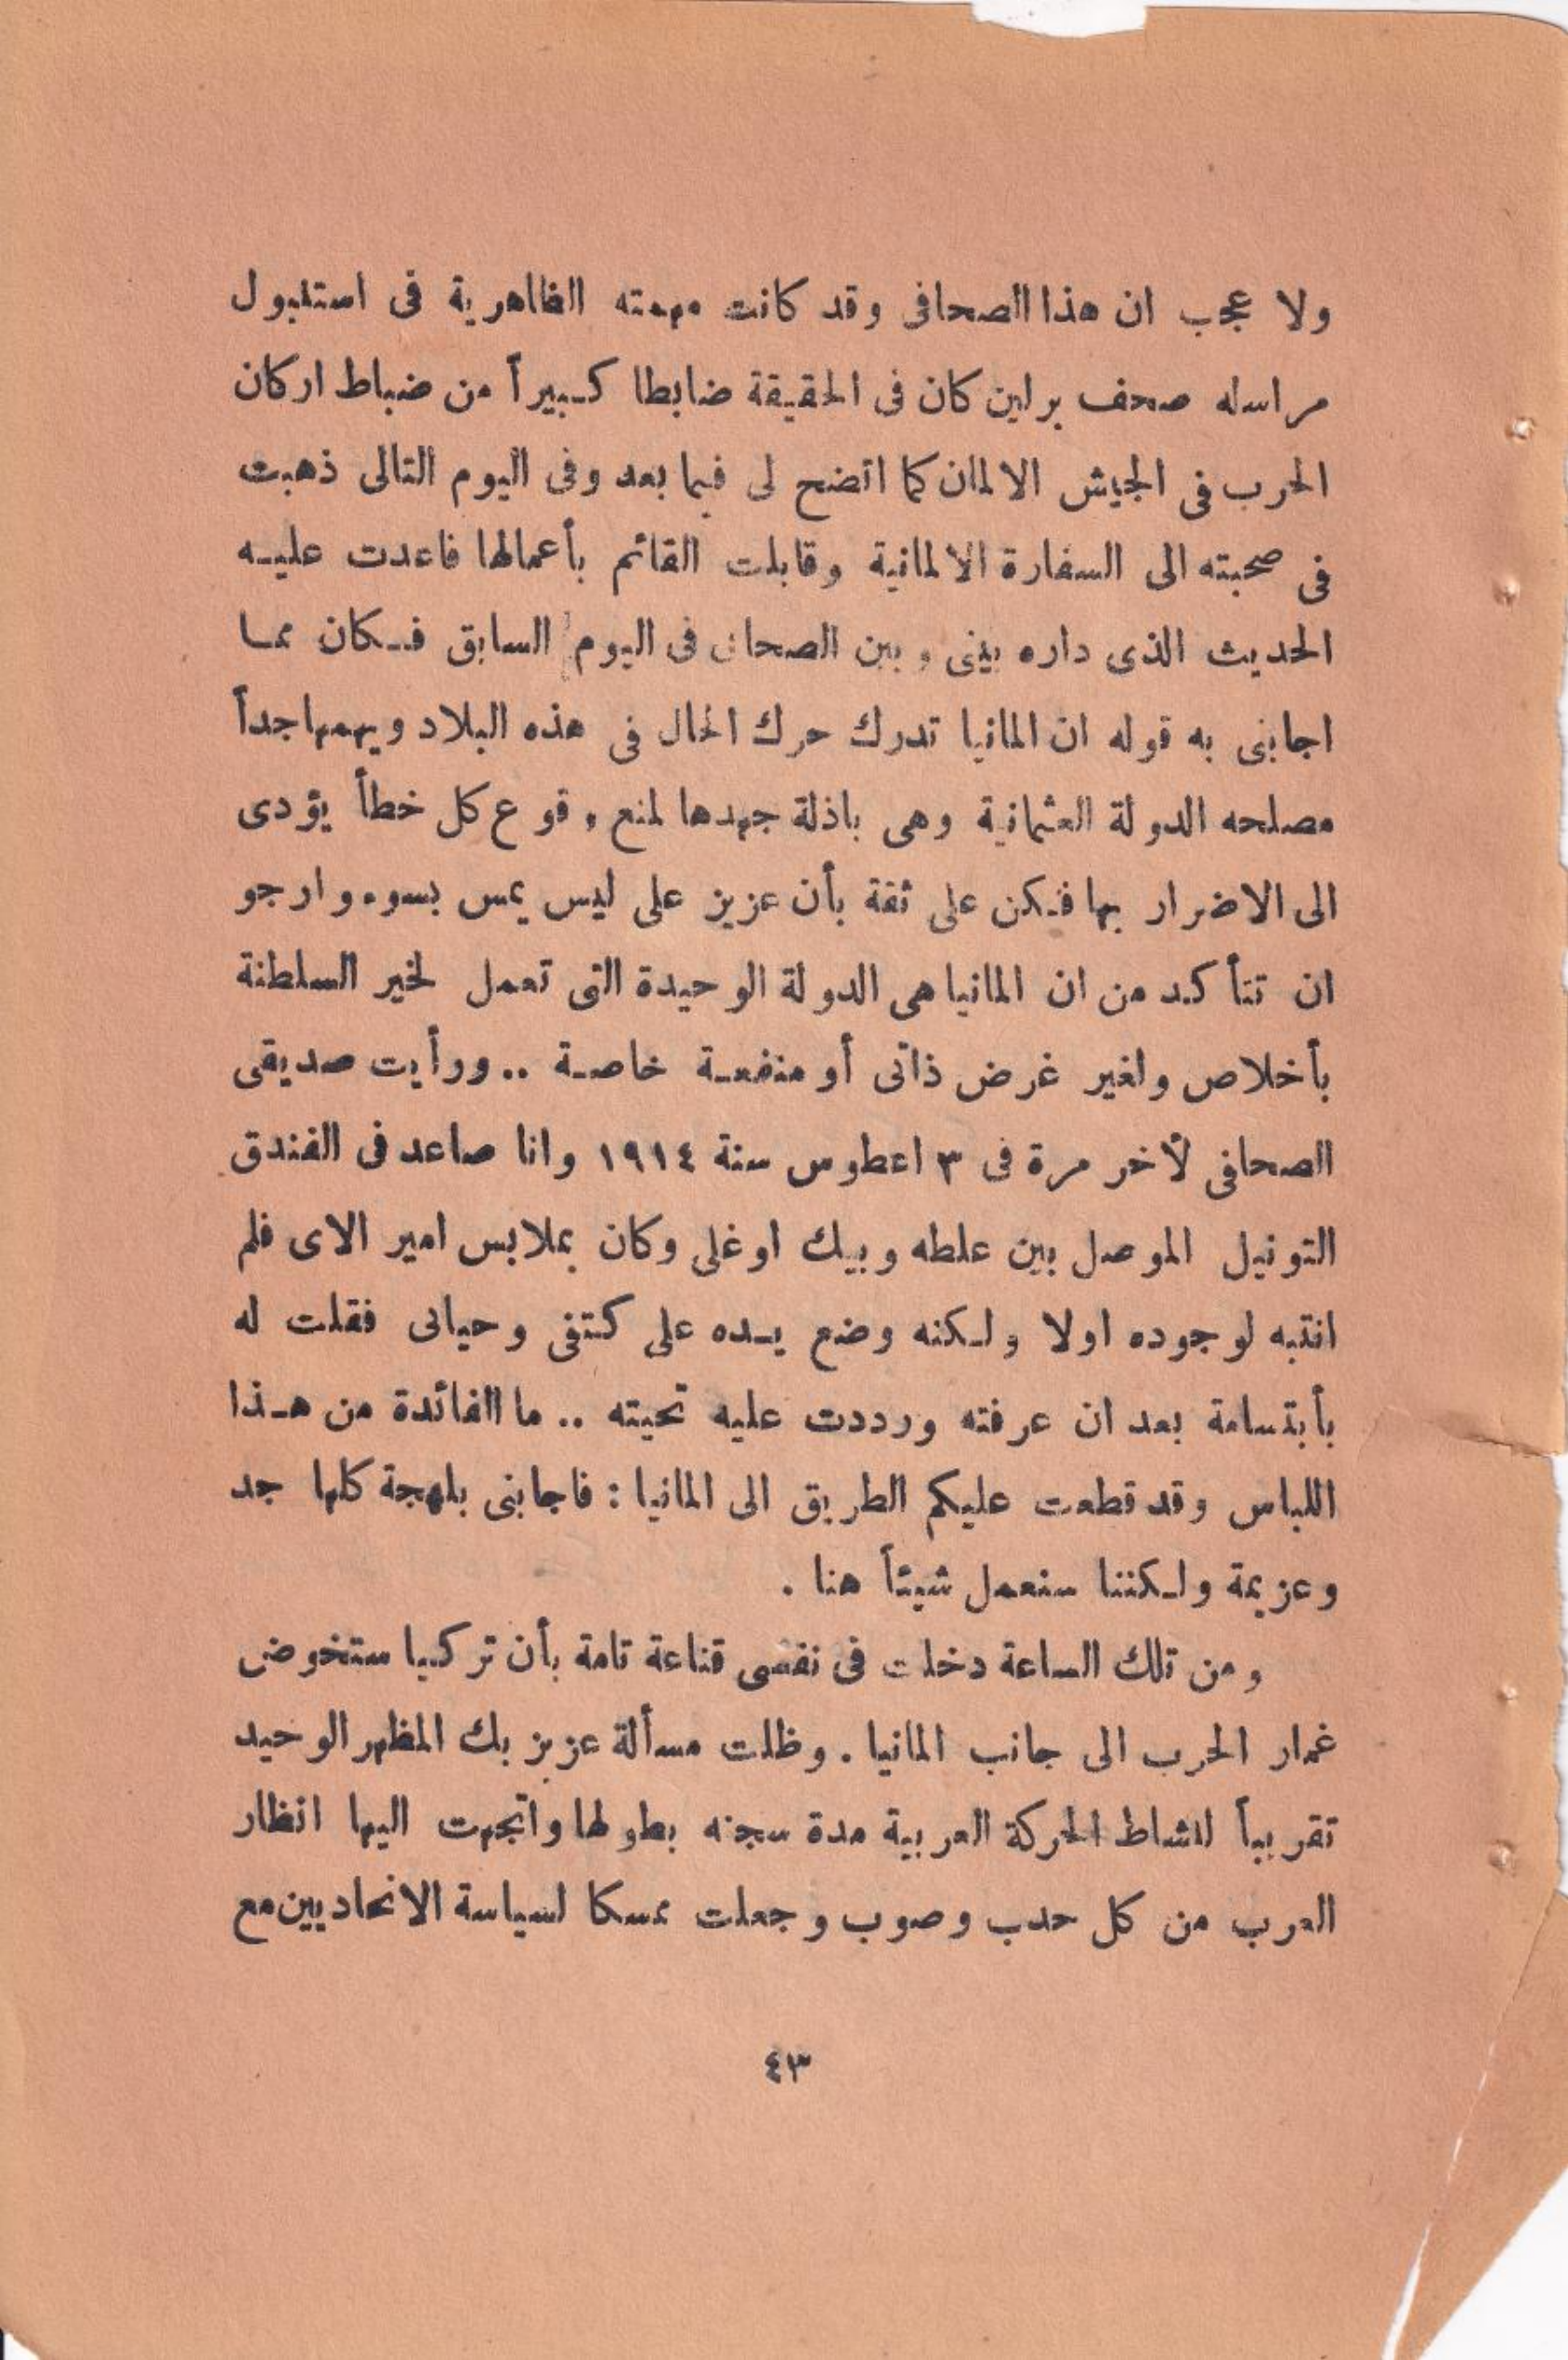 ولا عجب ان هذا الصحافى وقد كانت مهمته الظاهرية فى استنبول
مراسله صحف برلين كان فى الحقيقة ضابطا كبيراً من ضباط اركان
الحرب فى الجيش الالمان كما اتضح لى فيما بعد وفى اليوم التالى ذهبت
فى صحبته الى السفارة الالمانية وقابلت القائم بأعمالها فاعدت عليه
الحديث الذى داره بينى وبين الصحافى فى اليوم السابق فكان مما
اجابنى به قوله ان المانيا تدرك حرك الحال فى هذه البلاد ويهمها جداً
مصلحه الدولة العثمانية وهى باذلة جهدها لمنع وقوع كل خطأ يؤدى
الى الاضرار بها فكن على ثقة بأن عزيز على ليس يمس بسوء وارجو
ان تتأكد من ان المانيا هى الدولة الوحيدة التى تعمل لخير السلطنة
بأخلاص ولغير غرض ذاتى أو منفعة خاصة .. ورأيت صديقى
الصحافى لأخر مرة فى ٣ اعطوس سنة ١٩١٤ وانا صاعد فى الفندق
التونيل الموصل بين علطه وبيك اوغلى وكان بملابس امير الاى فلم
انتبه لوجوده اولا ولكنه وضع يده على كتفى وحيانى فقلت له
بأبتسامة بعد ان عرفته ورددت عليه تحيته .. ما الفائدة من هذا
اللباس وقد قطعت عليكم الطريق الى المانيا : فاجابنى بلهجة كلها جد
وعزيمة ولكننا سنعمل شيئاً هنا .
ومن تلك الساعة دخلت فى نفسى قناعة تامة بأن تركيا ستخوض
غمار الحرب الى جانب المانيا . وظلت مسألة عزيز بك المظهر الوحيد
تقريباً لنشاط الحركة العربية مدة سجنه بطولها واتجهت اليها انظار
العرب من كل حدب وصوب وجعلت ممسكا لسياسة الاتحاديين مع
٤٣